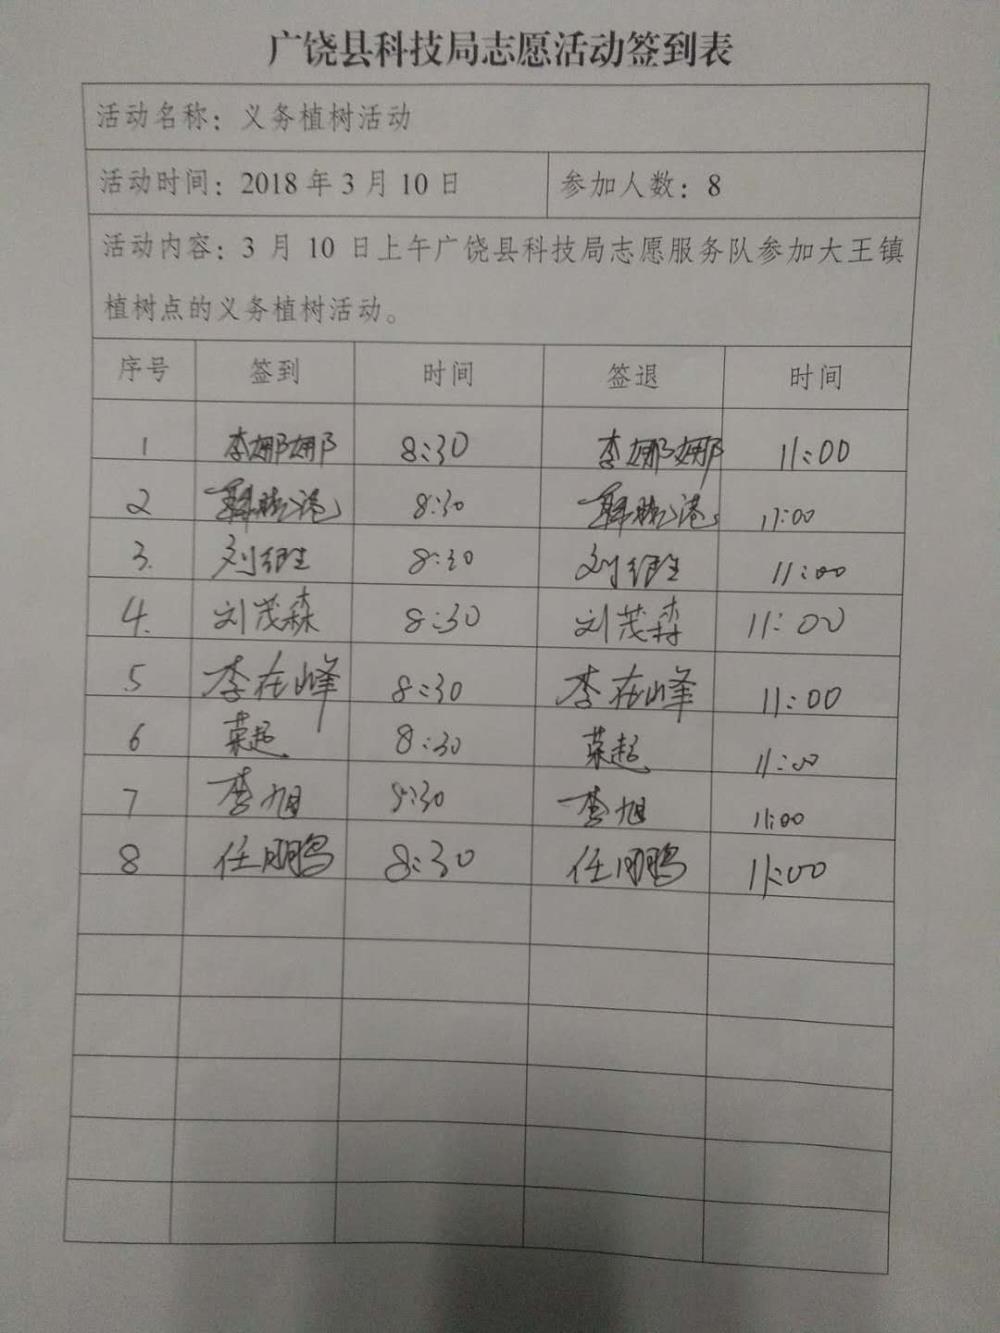 广饶县科技局志愿活动签到表
活动名称：义务植树活动
活动时间：2018 年 3 月 10 日 参加人数：8
活动内容：3 月 10 日上午广饶县科技局志愿服务队参加大王镇
植树点的义务植树活动。
序号 签到 时间 签退 时间
1 李娜娜 8:30 李娜娜 11:00
2 8:30 11:00
3. 刘 8:30 刘 11:00
4. 刘茂森 8:30 刘茂森 11:00
5 李在峰 8:30 李在峰 11:00
6 荣超 8:30 荣超 11:00
7 李旭 8:30 李旭 11:00
8 任鹏 8:30 任鹏 11:00